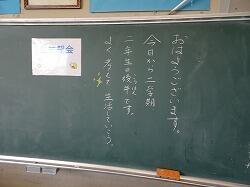 おはようございます。
今日から二学期
二年生の後半です。
こうはん
よく考えて生活していこう。